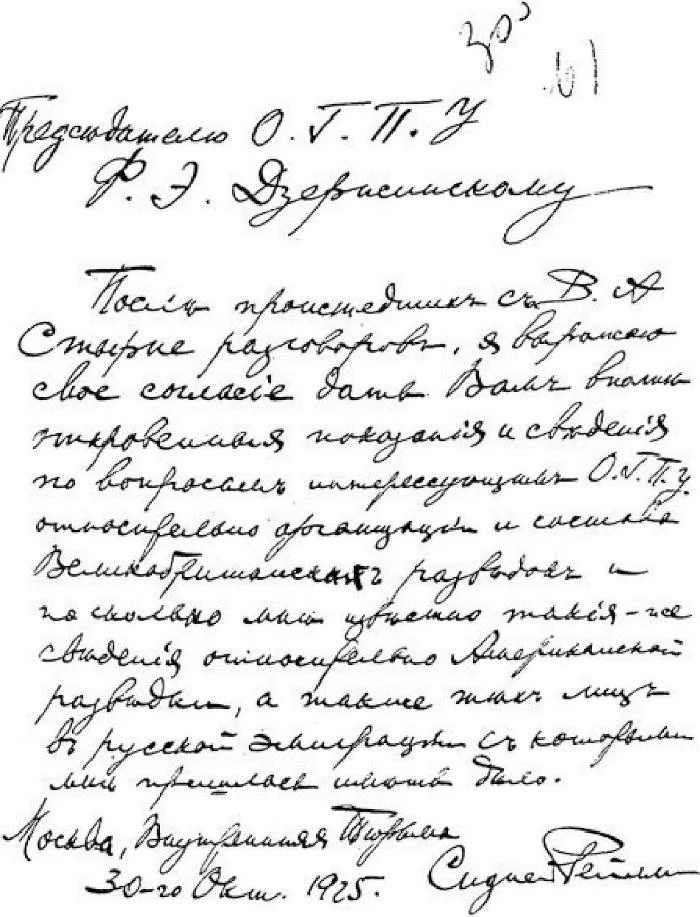 Предсѣдателю О. Г. П. У
Ф. Э. Дзержинскому
Послѣ происшедшихъ съ В. А
Стырне разговоровъ, я выражаю
свое согласіе дать Вамъ вполнѣ
откровенныя показанія и свѣдѣнія
по вопросамъ интересующимъ О.Г.П.У.
относительно организаціи и состава
Великобританскихъ развѣдокъ и
по сколько мнѣ извѣстно такія-же
свѣдѣнія относительно Американской
развѣдки, а также тѣхъ лицъ
въ русской эмиграціи съ которыми
мнѣ пришлось имѣть дѣло.
Москва, Внутренняя Тюрьма
30-го Окт. 1925. Сидней Рейлли